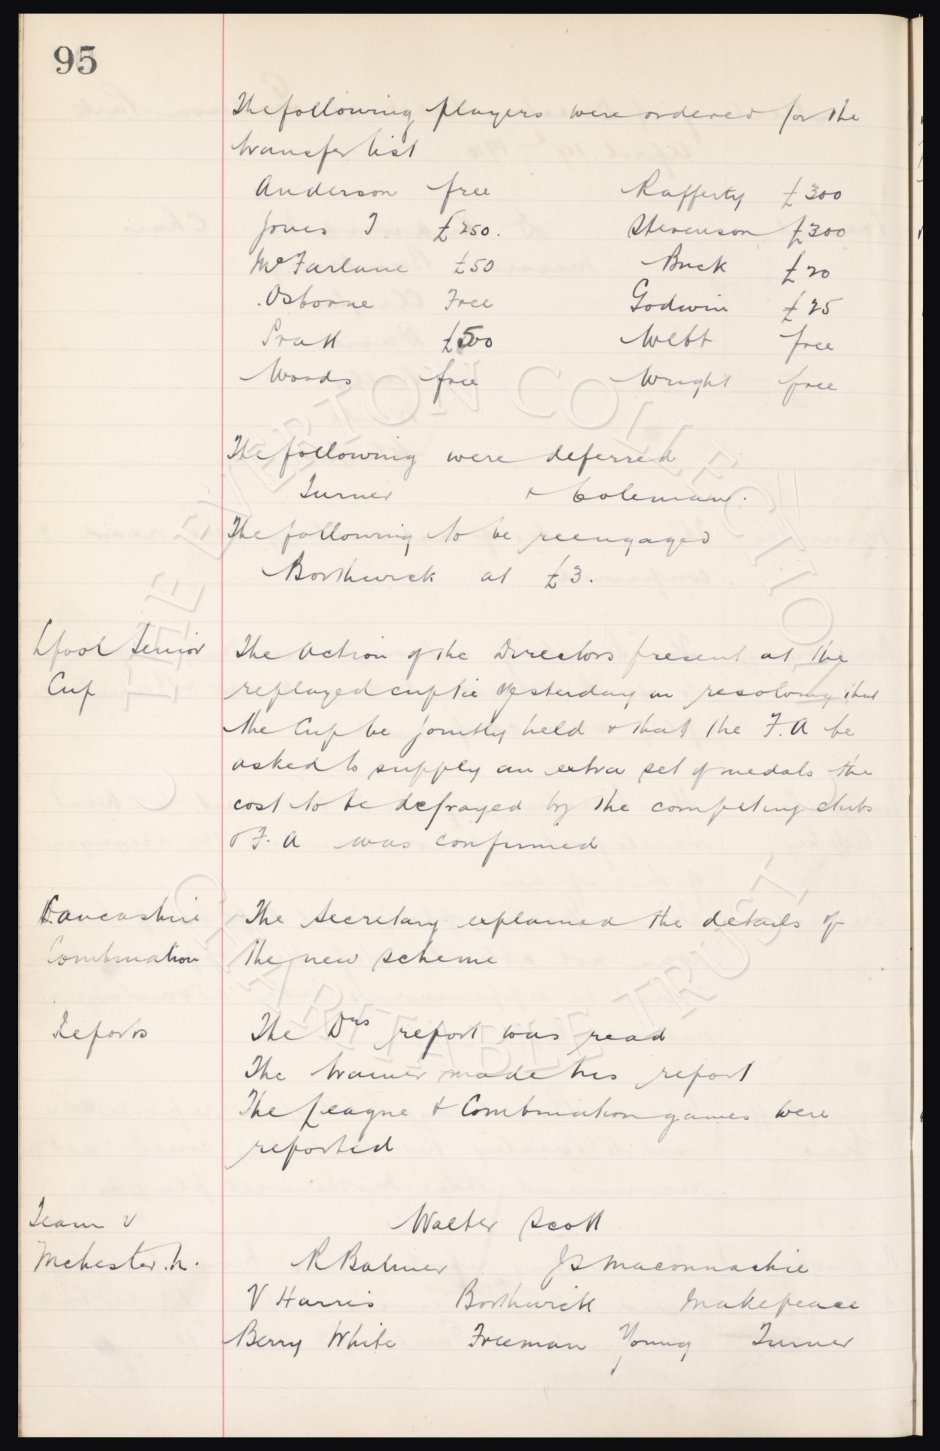 95
The following players were ordered for the
transfer list
Anderson free Rafferty £300
Jones T £250. Stevenson £300
McFarlane £50 Buck £20
Osborne Free Godwin £25
Pratt £500 Webb free
Woods free Wright free
The following were deferred
Turner & Coleman.
The following to be reengaged
Borthwick at £3.
Lpool Senior The action of the Directors present at the
Cup replayed cup tie yesterday in resolving that
the Cup be jointly held & that the F.A be
asked to supply an extra set of medals the
cost to be defrayed by the competing clubs
& F. A was confirmed
Lancashire The Secretary explained the details of
Combination the new scheme
Reports The Drs report was read
The trainer made his report
The League & Combination games were
reported
Team v Walter Scott
Mchester.U. R Balmer JS Maconnachie
V Harris Borthwick Makepeace
Berry White Freeman Young Turner
THE EVERTON COLLECTION
CHARITABLE TRUST